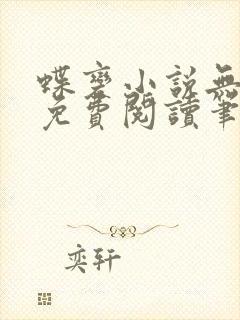 蝶变小说無
免費閱讀筆
奕轩